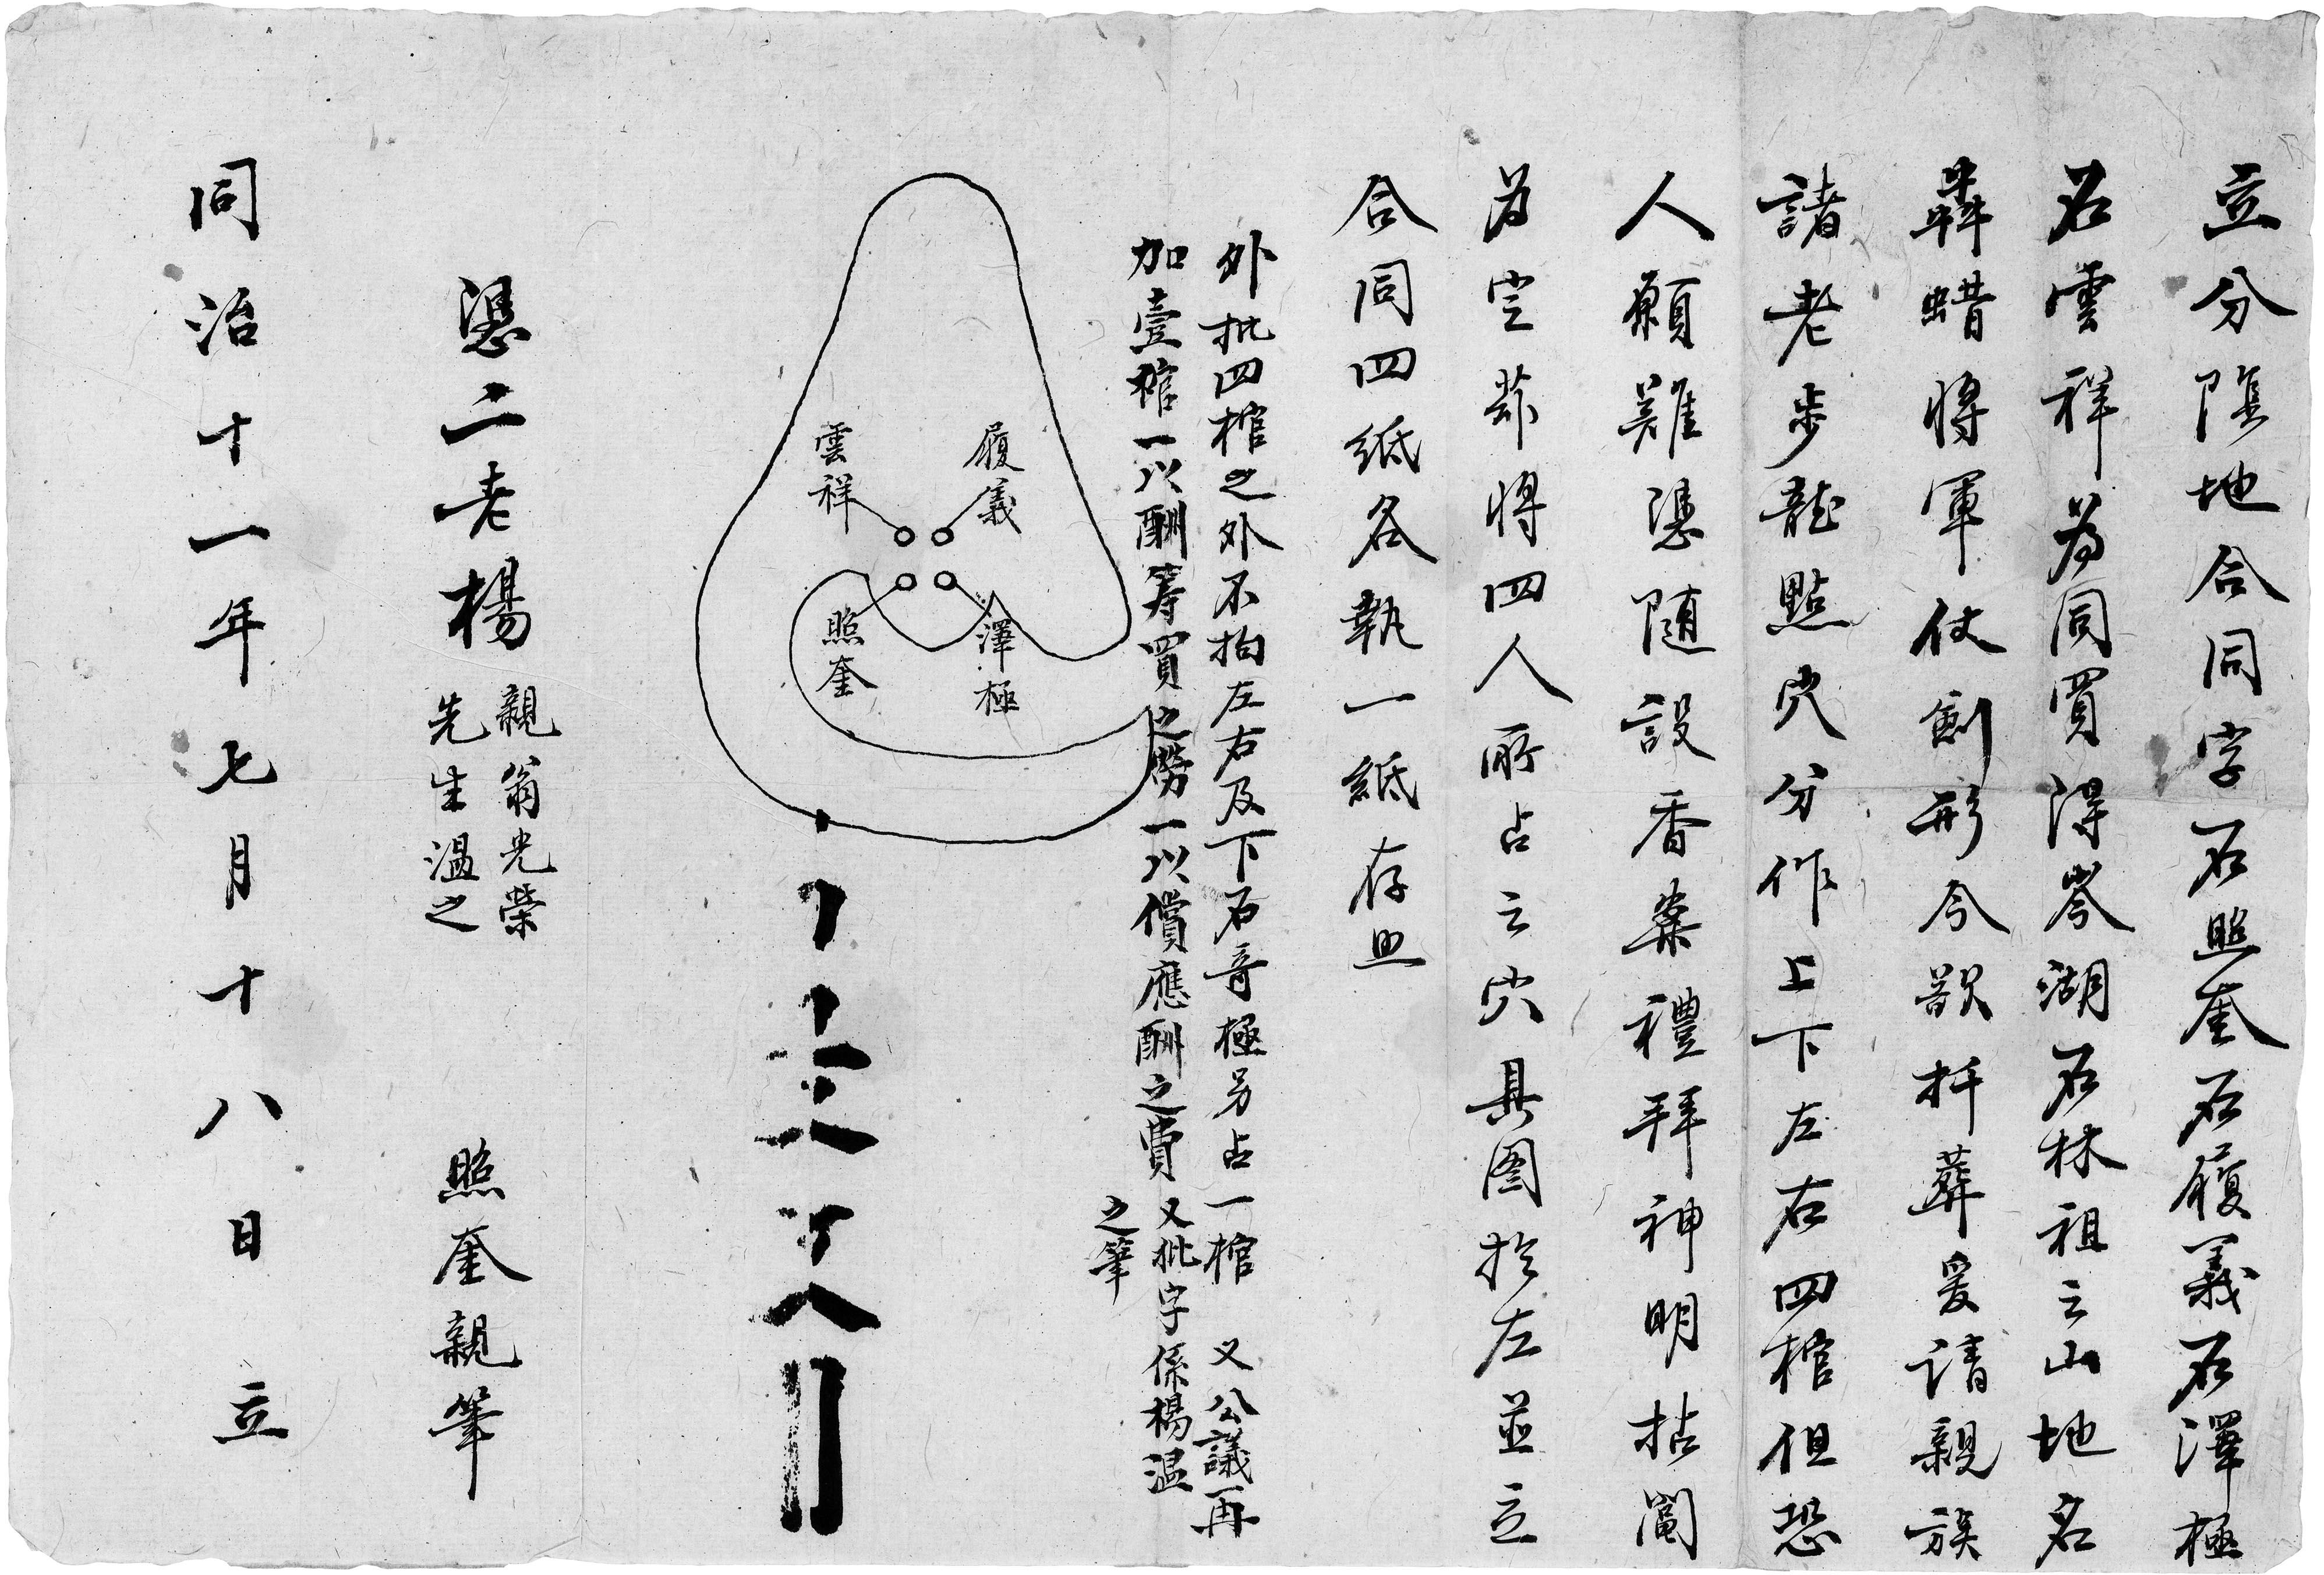 立分陰地合同字石照奎石履義石澤極
石雲祥為同買得岑湖石林祖之山地名
蜡將軍仗劍形今欲扦葬爰請親族
諸老步龍點穴分作上下左右四棺但恐
人願難憑随設香案禮拜神明拈鬮
為定茲將四人所占之穴具图於左並立
合同四紙各執一紙存照
外批四棺之外不拘左右及下石奇極另占一棺 又公議再
加壹棺一以酬籌買之勞一以償應酬之費 又批字係楊温
之筆
履義
雲祥
澤極
照奎
憑二老楊
親翁光榮
先生溫之
照奎親筆
同治十一年七月十八日 立